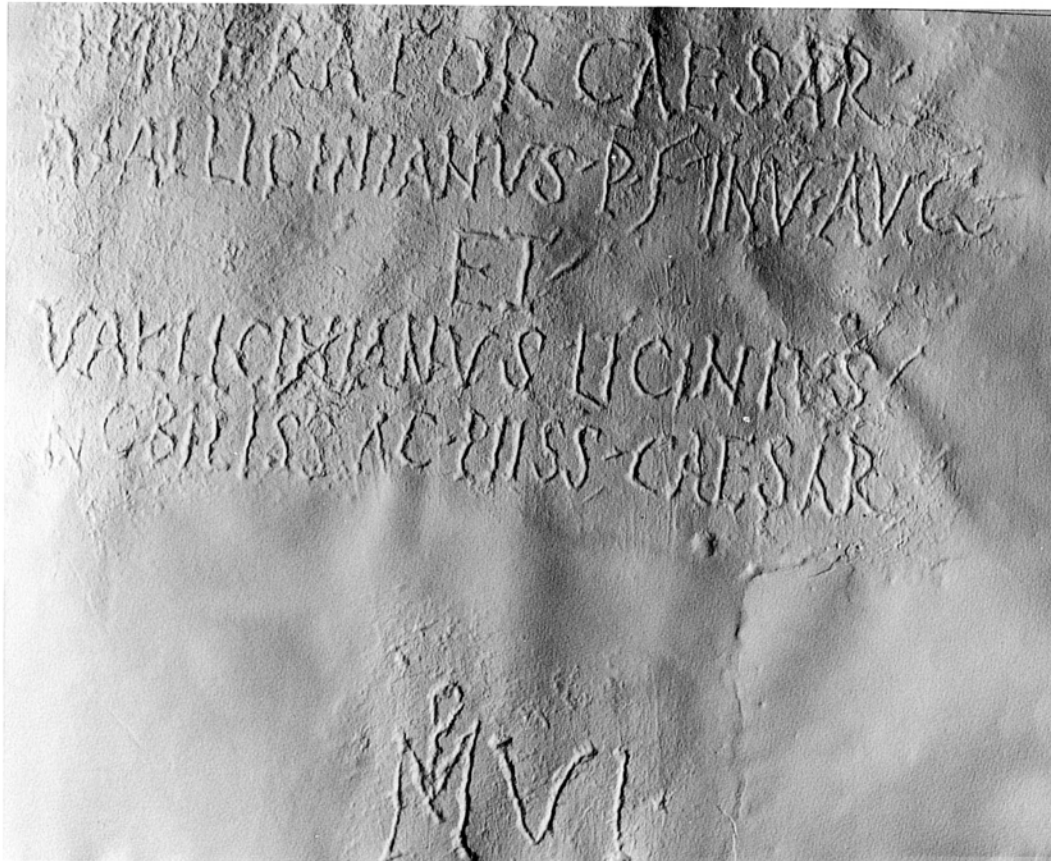 IMPERATOR CAESAR
VAL LICINIANVS·P·F·INV·AVG
ET
VAL LICINIANVS LICINIVS
NOBILISS AC·PIISS·CAESAR
MP VI